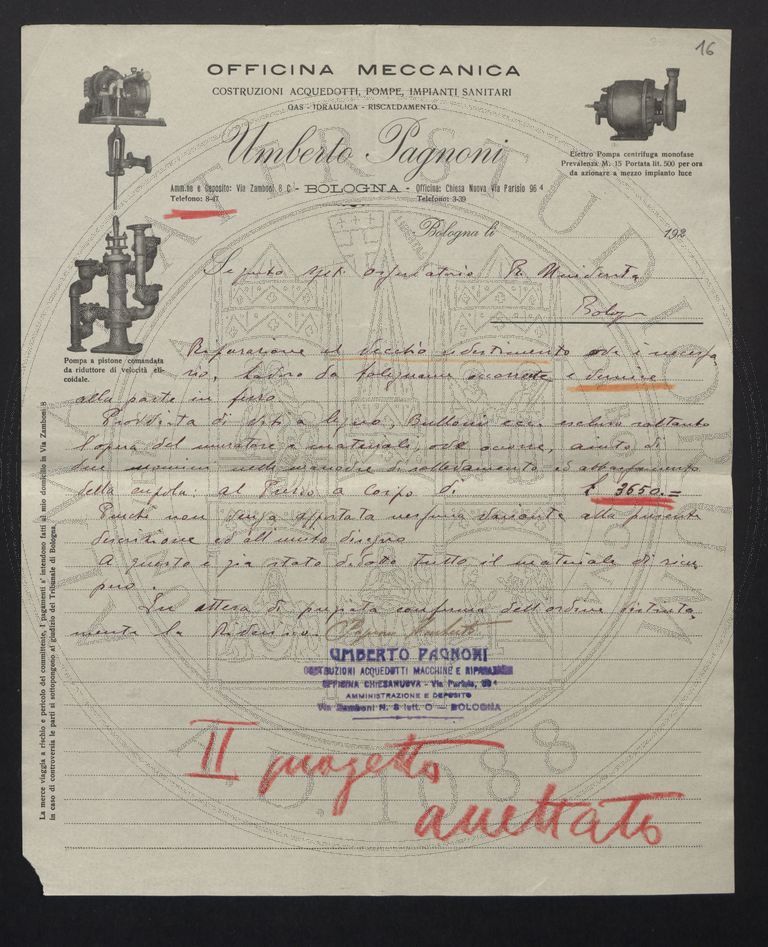 16
OFFICINA MECCANICA
COSTRUZIONI ACQUEDOTTI, POMPE, IMPIANTI SANITARI
GAS - IDRAULICA - RISCALDAMENTO
Umberto Pagnoni
Amm.ne e Deposito: Via Zamboni 8 C - BOLOGNA - Officina: Chiesa Nuova Via Parisio 96 4
Telefono: 8-47 Telefono: 3-39
Elettro Pompa centrifuga monofase
Prevalenza M. 15 Portata lit. 500 per ora
da azionare a mezzo impianto luce
Bologna li 192
Seguito Osservatorio R. Università
Bologna
Pompa a pistone comandata
da riduttore di velocità eli-
coidale.
Riparazione al vecchio rivestimento ove è necessa
rio, lavoro da falegname occorrente, e
alla parte in ferro
Provvista di Viti a legno, Bulloni ecc. escluso soltanto
l'opera del muratore e materiali, ove occorre, aiuto di
due uomini nelle manovre di sollevamento ed abbassamento
della cupola: al Prezzo a corpo di £ 3650.=
Purchè non venga apportata nessuna variante alla presente
descrizione ed all'unito disegno
A questo è già stato dedotto tutto il materiale di ricu
pero.
In attesa di pregiata conferma dell'ordine distinta
mente la Riverisco. Pagnoni Umberto
UMBERTO PAGNONI
COSTRUZIONI ACQUEDOTTI MACCHINE E RIPARAZIONI
OFFICINA CHIESANUOVA - Via Parisio, 96 4
AMMINISTRAZIONE E DEPOSITO
Via Zamboni N. 8 lett. C — BOLOGNA
II progetto
accettato
La merce viaggia a rischio e pericolo del committente, I pagamenti s' intendono fatti al mio domicilio in Via Zamboni 8
in caso di controversia le parti si sottopongono al giudizio del Tribunale di Bologna
ALMA MATER STUDIORUM
A.D. 1088